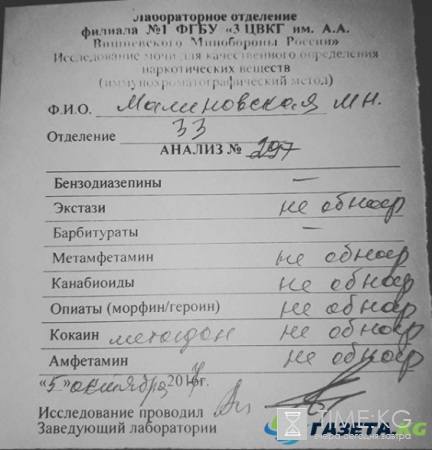 Лабораторное отделение
филиала №1 ФГБУ «3 ЦВКГ им. А.А.
Вишневского Минобороны России»
Исследование мочи для качественного определения
наркотических веществ
(иммунохроматографический метод)
Ф.И.О. Малиновская М.Н.
Отделение 33
АНАЛИЗ № 297
Бензодиазепины —
Экстази не обнар
Барбитураты —
Метамфетамин не обнар
Канабиоиды не обнар
Опиаты (морфин/героин) не обнар
Кокаин метадон не обнар
Амфетамин не обнар
«5» октября 2017г.
Исследование проводил
Заведующий лаборатории
TIME.KG
вчера сегодня завтра
ГАЗЕТА.KG